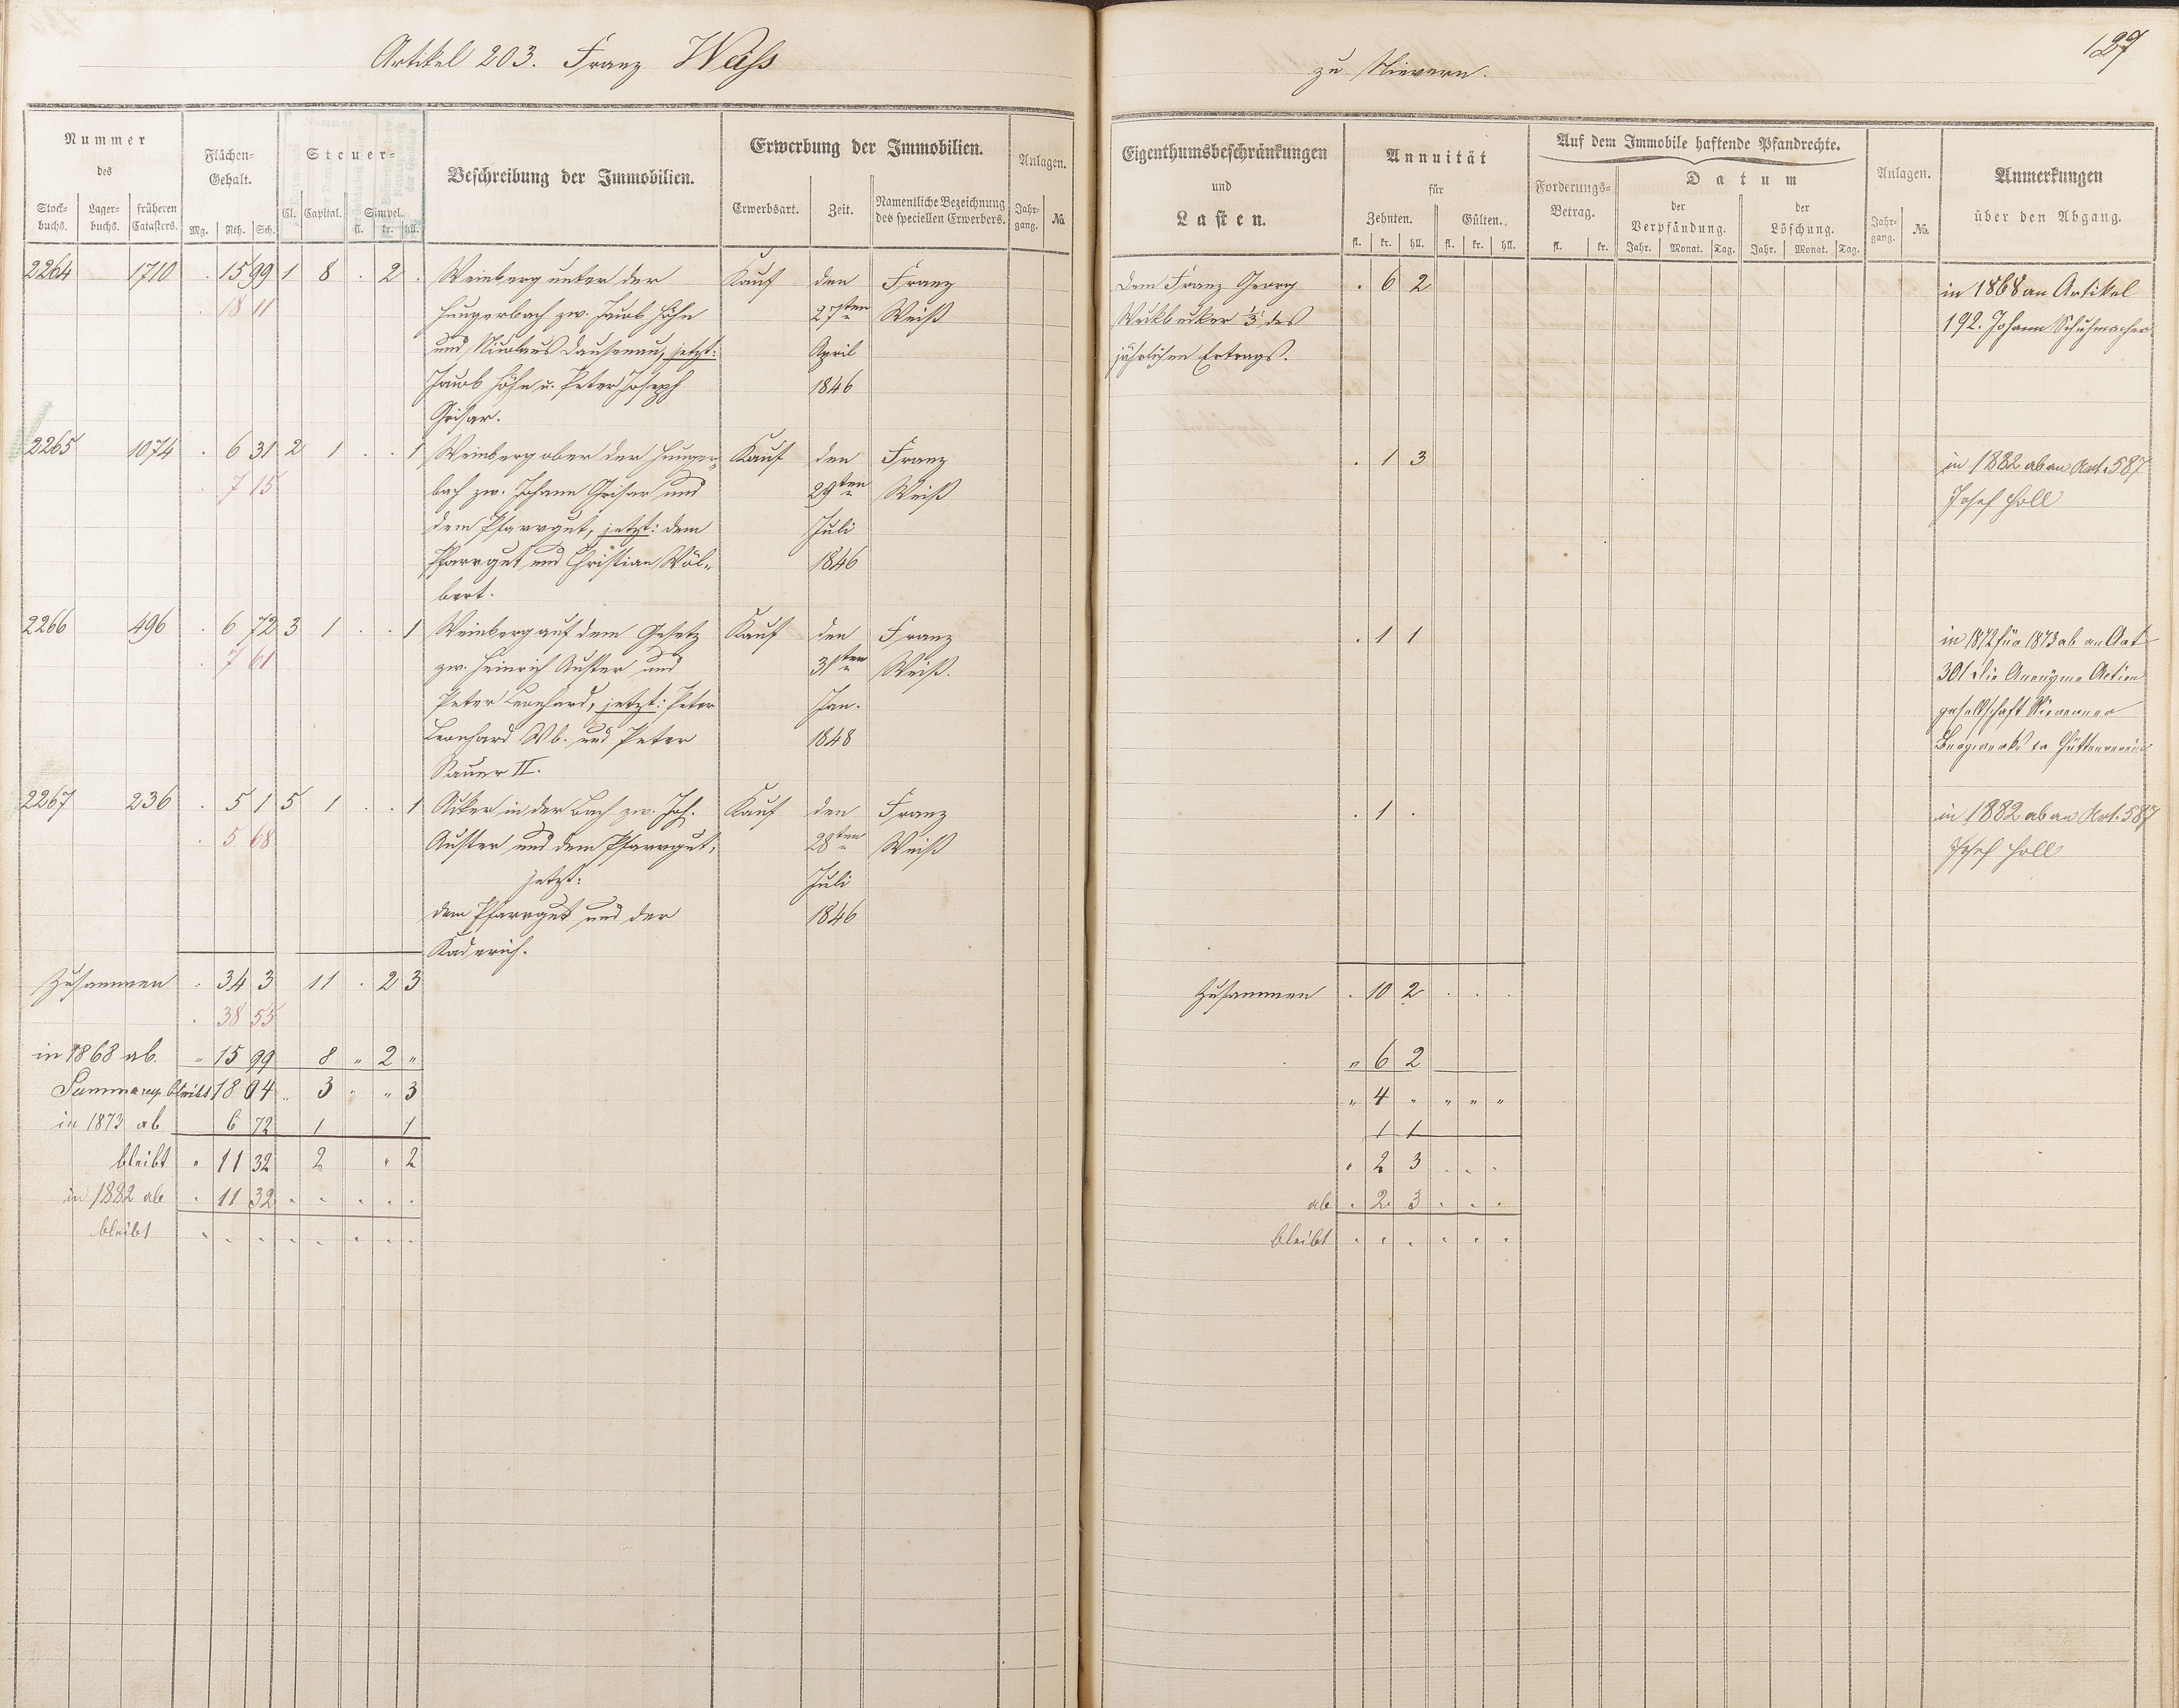 Artikel 203. Franz Weiss
zu Nievern.
187
Nummer des
Stock-buchs. Lager-buchs. früheren Catasters.
Flächen-Gehalt.
Mg. Rth. Sch.
Steuer-
Cl. Capital. Simpel.
fl. kr. hll.
Beschreibung der Immobilien.
Erwerbung der Immobilien.
Erwerbsart. Zeit. Namentliche Bezeichnung des speciellen Erwerbers.
Anlagen.
Jahr-gang. No.
Eigenthumsbeschränkungen
und
Lasten.
Annuität
für
Zehnten. Gülten.
fl. kr. hll. fl. kr. hll.
Auf dem Immobile haftende Pfandrechte.
Forderungs-Betrag.
fl. kr.
Datum
der Verpfändung. der Löschung.
Jahr. Monat. Tag. Jahr. Monat. Tag.
Anlagen.
Jahr-gang. No.
Anmerkungen
über den Abgang.
2264 1710 . 15 99 1 8 . 2 . Weinberg unter der Kauf den Franz
. 18 11 Hungerbach zw. Jacob Höhn 27ten Weiß
und Nicolaus Dausenau, jetzt: April
Jacob Höhn u. Peter Joseph 1846
Grisar.
Dem Franz Georg . 6 2 in 1868 an Artikel
1/3 des 192. Johann Schuhmacher
jährlichen Ertrags.
2265 1074 . 6 31 2 1 . . 1 Weinberg ober der Hunger- Kauf den Franz
. 7 15 bach zw. Johann Grisar und 29ten Weiß
dem Pfarrgut, jetzt: dem Juli
Pfarrgut und Christian Wöl- 1846
bert.
. 1 3 in 1882 ab an Art. 587
Josef Holl
2266 496 . 6 72 3 1 . . 1 Weinberg auf dem Gesetz Kauf den Franz
. 7 61 zw. Heinrich Auster und 31ten Weiß.
Peter Leonhard, jetzt: Peter Jan.
Leonhard Wb. und Peter 1848
Sauer II.
. 1 1 in 1872 für 1873 ab an Art
301 die Anonyme Actien
gesellschaft Nieverner
Bergwerks u. Hüttenverein
2267 236 . 5 1 5 1 . . 1 Acker in der Bach zw. Joh. Kauf den Franz
. 5 68 Auster und dem Pfarrgut, 28ten Weiß
jetzt: Juli
dem Pfarrgut und der 1846
Kaderich.
. 1 . in 1882 ab an Art. 587
Josef Holl
Zusammen . 34 3 11 . 2 3
. 38 55
in 1868 ab. " 15 99 8 " 2 "
Summa bleibt 18 04 " 3 " " 3
in 1873 ab 6 72 1 1
bleibt " 11 32 2 " 2
in 1882 ab . 11 32 . . . . .
bleibt . . . . . . . .
Zusammen . 10 2 . . .
" 6 2
" 4 " " " "
1 1
" 2 3 . . .
ab . 2 3 . . .
bleibt . . . . . .